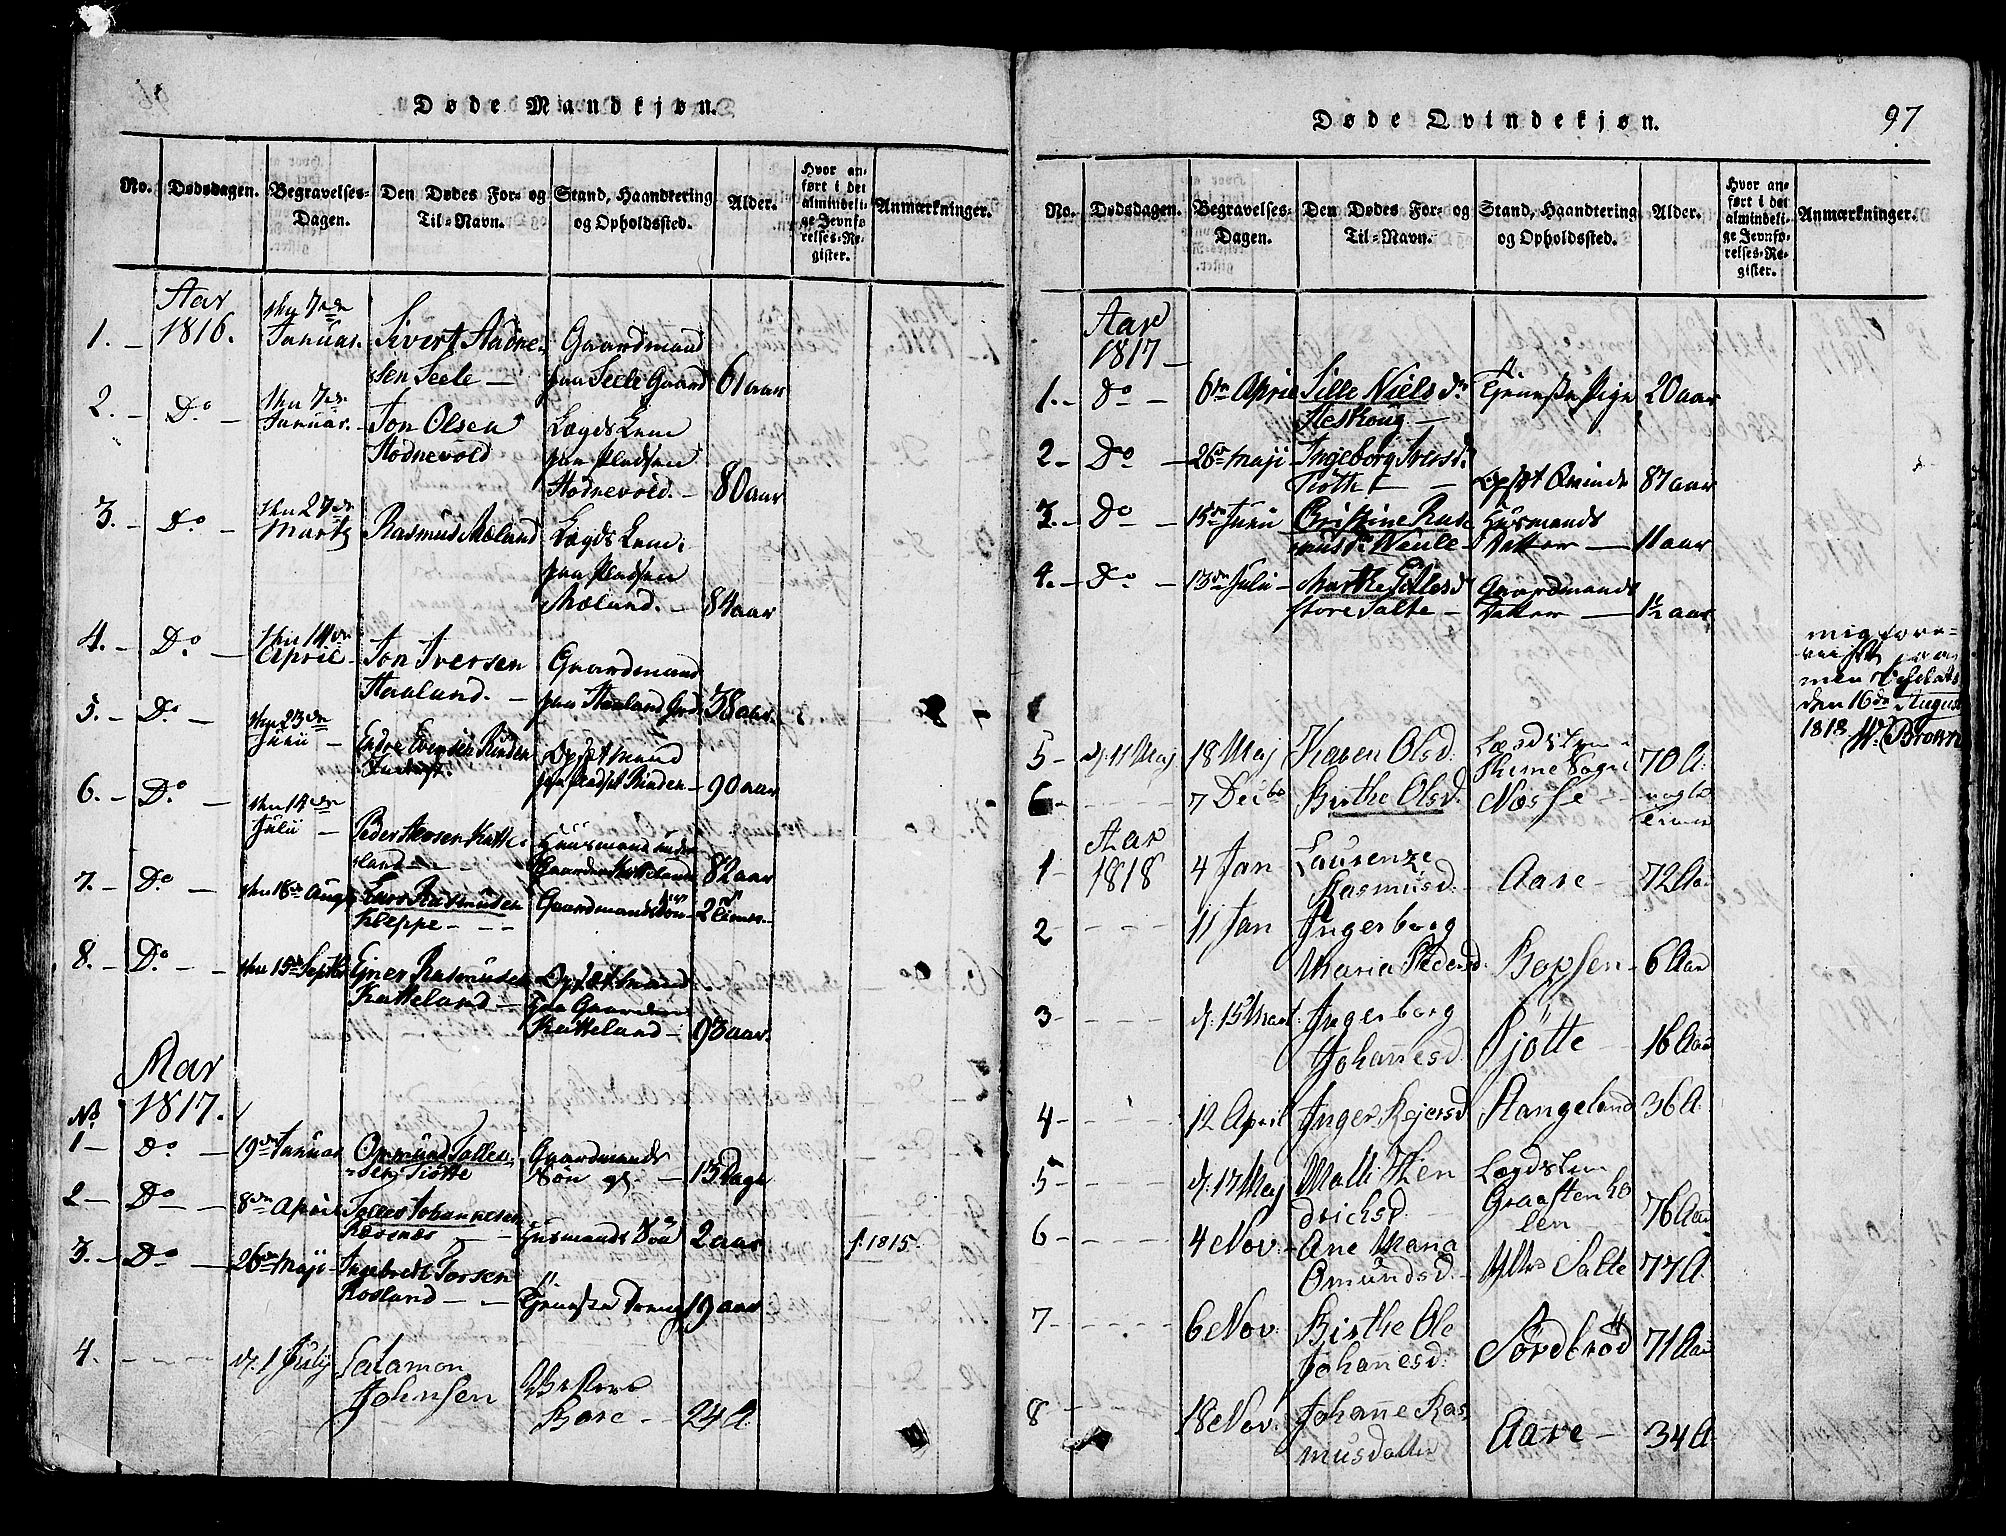 Døde Mandkjøn.
No. Dødsdagen. Begravelses-Dagen. Den Dødes For- og Til-Navn. Stand, Haandtering og Opholdssted. Alder. Hvor anført i det almindelige Jevnførelses-Register. Anmærkninger.
Aar 1816.
1. - den 7de Januar. Sivert Aadnesen Seele - Gaardmand paa Seele Gaard 61 aar
2. - Do - den 7de Januar. - Jon Olsen Hodnevold Lægds Lem paa Pladsen Hodnevold. - 80 aar
3. - Do - den 27de Martz Rasmus Mæland Lægds Lem. paa Pladsen Mæland. - 84 aar
4. - Do. - den 14de April - Jon Iversen Haaland. - Gaardmand paa Haaland Grd 38 aar.
5. - Do. - den 23de Junii - Endre Evensen Rinden 90 aar
6. - Do. - den 14de Julii - Peder Katteland - Huusmand under Gaarden Katteland 82 aar
7. - Do - den 18de Aug. Lars Rasmusen Kleppe - - - Gaardmands Søn - 2 Timer.
8. - Do. - - den 15de Septb. Ejner Rasmusen Katteland - Opsætmand paa Gaarden Katteland - 93 aar.
Aar 1817.
No.
1 - Do - 19de Januar Ommund Tollesen Tiøtte Gaardmands Søn - 13 Dage
2 - Do - 8de April Tolles Johannesen Husmands Søn 2 aar f. 1815.
3. - Do - 26de Maji - Ingebreth Torsen Rosland - - Tjeneste Dreng 19 aar
4. - - - - d. 1 July Salamon Johnsen Vestere Bore - 24 A.
Døde Qvindekjøn.
97
No. Dødsdagen. Begravelses-Dagen. Den Dødes For- og Til-Navn. Stand, Haandtering og Opholdssted. Alder. Hvor anført i det almindelige Jevnførelses-Register. Anmærkninger.
Aar 1817 -
1. - Do - 6te April Sille Niels Dr Heskoug - Tjeneste Pige 20 aar
2 - Do - 26de Maji - Ingeborg Tiøtte - Qvinde 87 aar
3. - Do - 15de Junii Christine Rasmus Dr. Husmands Datter - 11 aar
4. - Do. - 13de Julii - Marthe Tolles d store Salte - Gaardmands Datter - 1½ aar
mig forevist
den 16de August 1818 W. Brown
5 - d. 11 Maj 18 Maj Karen Olsd. Thime Sogn 70 A.
6 - - - - - 7 Decbr Birthe Olsd. Næsse - -
Aar 1818
1 - 4 Jan Laurenze Rasmusd. Aare - 72 Aar
2 - - - - 11 Jan Ingerborg Maria Pedersd. 6 Aar
3 - - - - d. 15 Mart. Ingerborg Johannesd. Tjøtte - 16 Aar
4 - - - - 12 April Inger Rejersd Stangeland 36 A.
5 - - - - d. 17 Maj Malli Hendrichsd. Lægdslem 76 Aar
6 - - - - 4 Nov. Ane Maria Omundsd. Salte 77 A.
7 - - - - 6 Nov. Birthe Ole Johannesd. Sørdbrød 71 Aar
8 - - 18 Nov. Johanne Rasmusdatter Aare - 34 A.